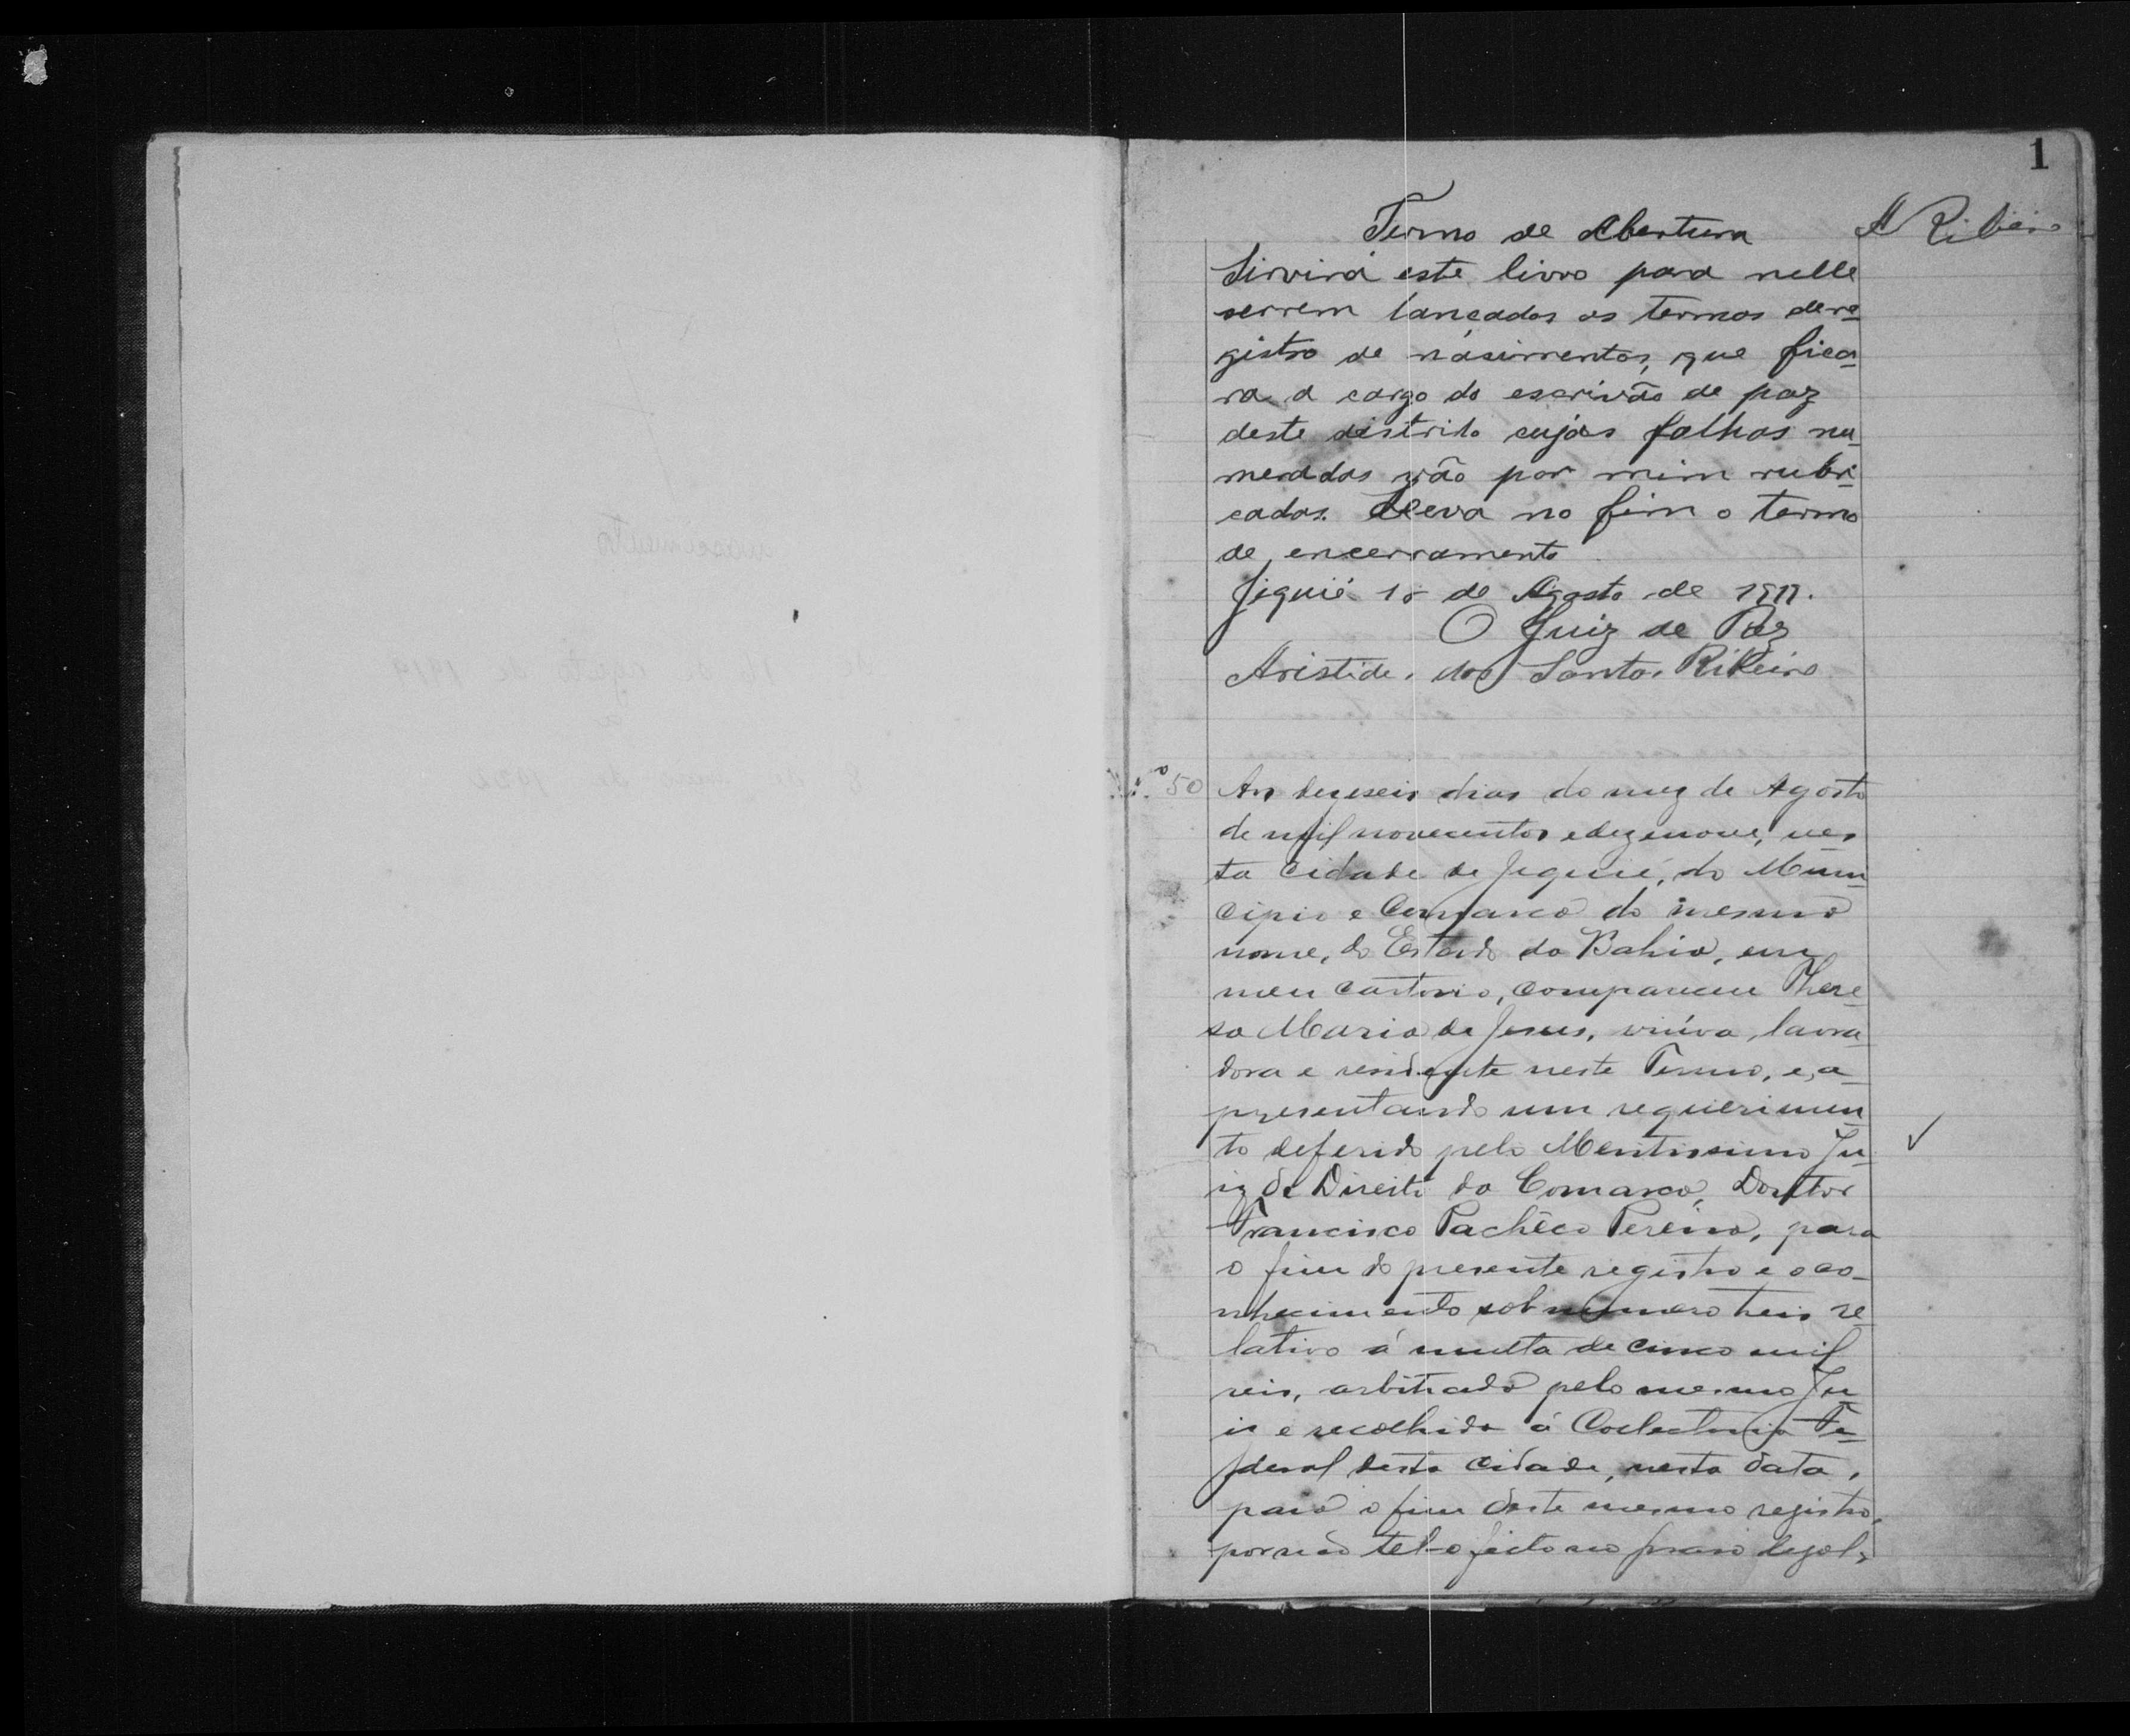 1
A Ribeiro
Termo de Abertura
Sirvirá este livro para nelle
serrem lançados os termos de re-
gistro de násimentos, que fica-
ra a cargo do escrivão de paz
deste distrito cujas folhas nu-
meradas vão por mim rubri-
cadas. Leva no fim o termo
de encerramento
Jequié 15 de Agosto de 1919.
O Juiz de Paz
Aristides dos Santos Ribeiro
N.º 50
Aos dezeseis dias do mez de Agosto
de mil novecentos e dezenove, nes
ta Cidade de Jequié, do Muni-
cipio e Comarca do mesmo
nome, do Estado da Bahia, em
meu cartorio, compareceu There-
sa Maria de Jesus, viúva, lavra-
dora e residente neste Termo, e, a-
presentando um requerimen-
to deferido pelo Meritissimo Ju-
iz de Direito da Comarca, Doutor
Francisco Pachêco Pereira, para
o fim do presente registro e o co-
nhecimento sob numero treis re-
lativo á multa de cinco mil
reis, arbitrada pelo mesmo Ju-
is e recolhida á Collectoria Fe-
deral desta cidade, nesta data,
para o fim deste mesmo registro,
por não tel-o feito no praso legal,
nascimento
16 de Agosto de 1919
a
8 de de 1920